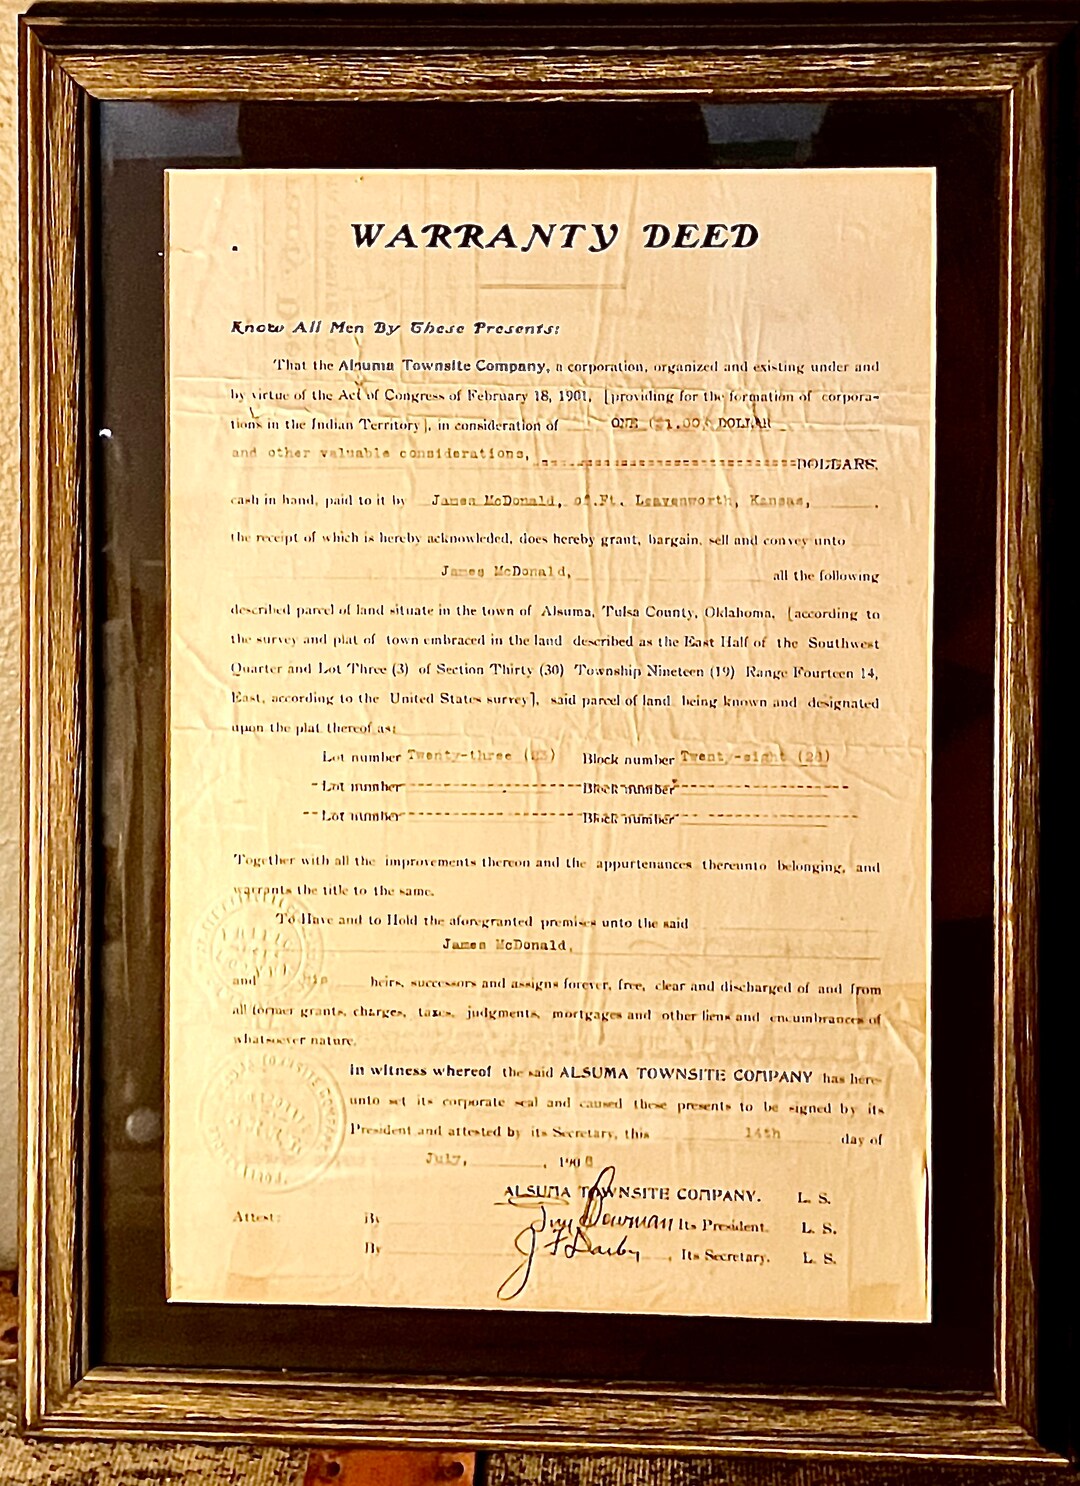 WARRANTY DEED
Know All Men By These Presents:
That the Alsuma Townsite Company, a corporation, organized and existing under and
by virtue of the Act of Congress of February 18, 1901, [providing for the formation of corpora-
tions in the Indian Territory], in consideration of ONE ($1.00) DOLLAR
and other valuable considerations, DOLLARS,
cash in hand, paid to it by James McDonald, of Ft. Leavenworth, Kansas,
the receipt of which is hereby acknowleded, does hereby grant, bargain, sell and convey unto
James McDonald, all the following
described parcel of land situate in the town of Alsuma, Tulsa County, Oklahoma, [according to
the survey and plat of town embraced in the land described as the East Half of the Southwest
Quarter and Lot Three (3) of Section Thirty (30) Township Nineteen (19) Range Fourteen 14,
East, according to the United States survey], said parcel of land being known and designated
upon the plat thereof as:
Lot number Twenty-three (23) Block number Twenty-eight (28)
Lot number Block number
Lot number Block number
Together with all the improvements thereon and the appurtenances thereunto belonging, and
warrants the title to the same.
To Have and to Hold the aforegranted premises unto the said
James McDonald,
and his heirs, successors and assigns forever, free, clear and discharged of and from
all former grants, charges, taxes, judgments, mortgages and other liens and encumbrances of
whatsoever nature.
In witness whereof the said ALSUMA TOWNSITE COMPANY has here-
unto set its corporate seal and caused these presents to be signed by its
President and attested by its Secretary, this 14th day of
July, 190
ALSUMA TOWNSITE COMPANY. L. S.
Attest: By Bowman Its President. L. S.
By J F Darby, Its Secretary. L. S.